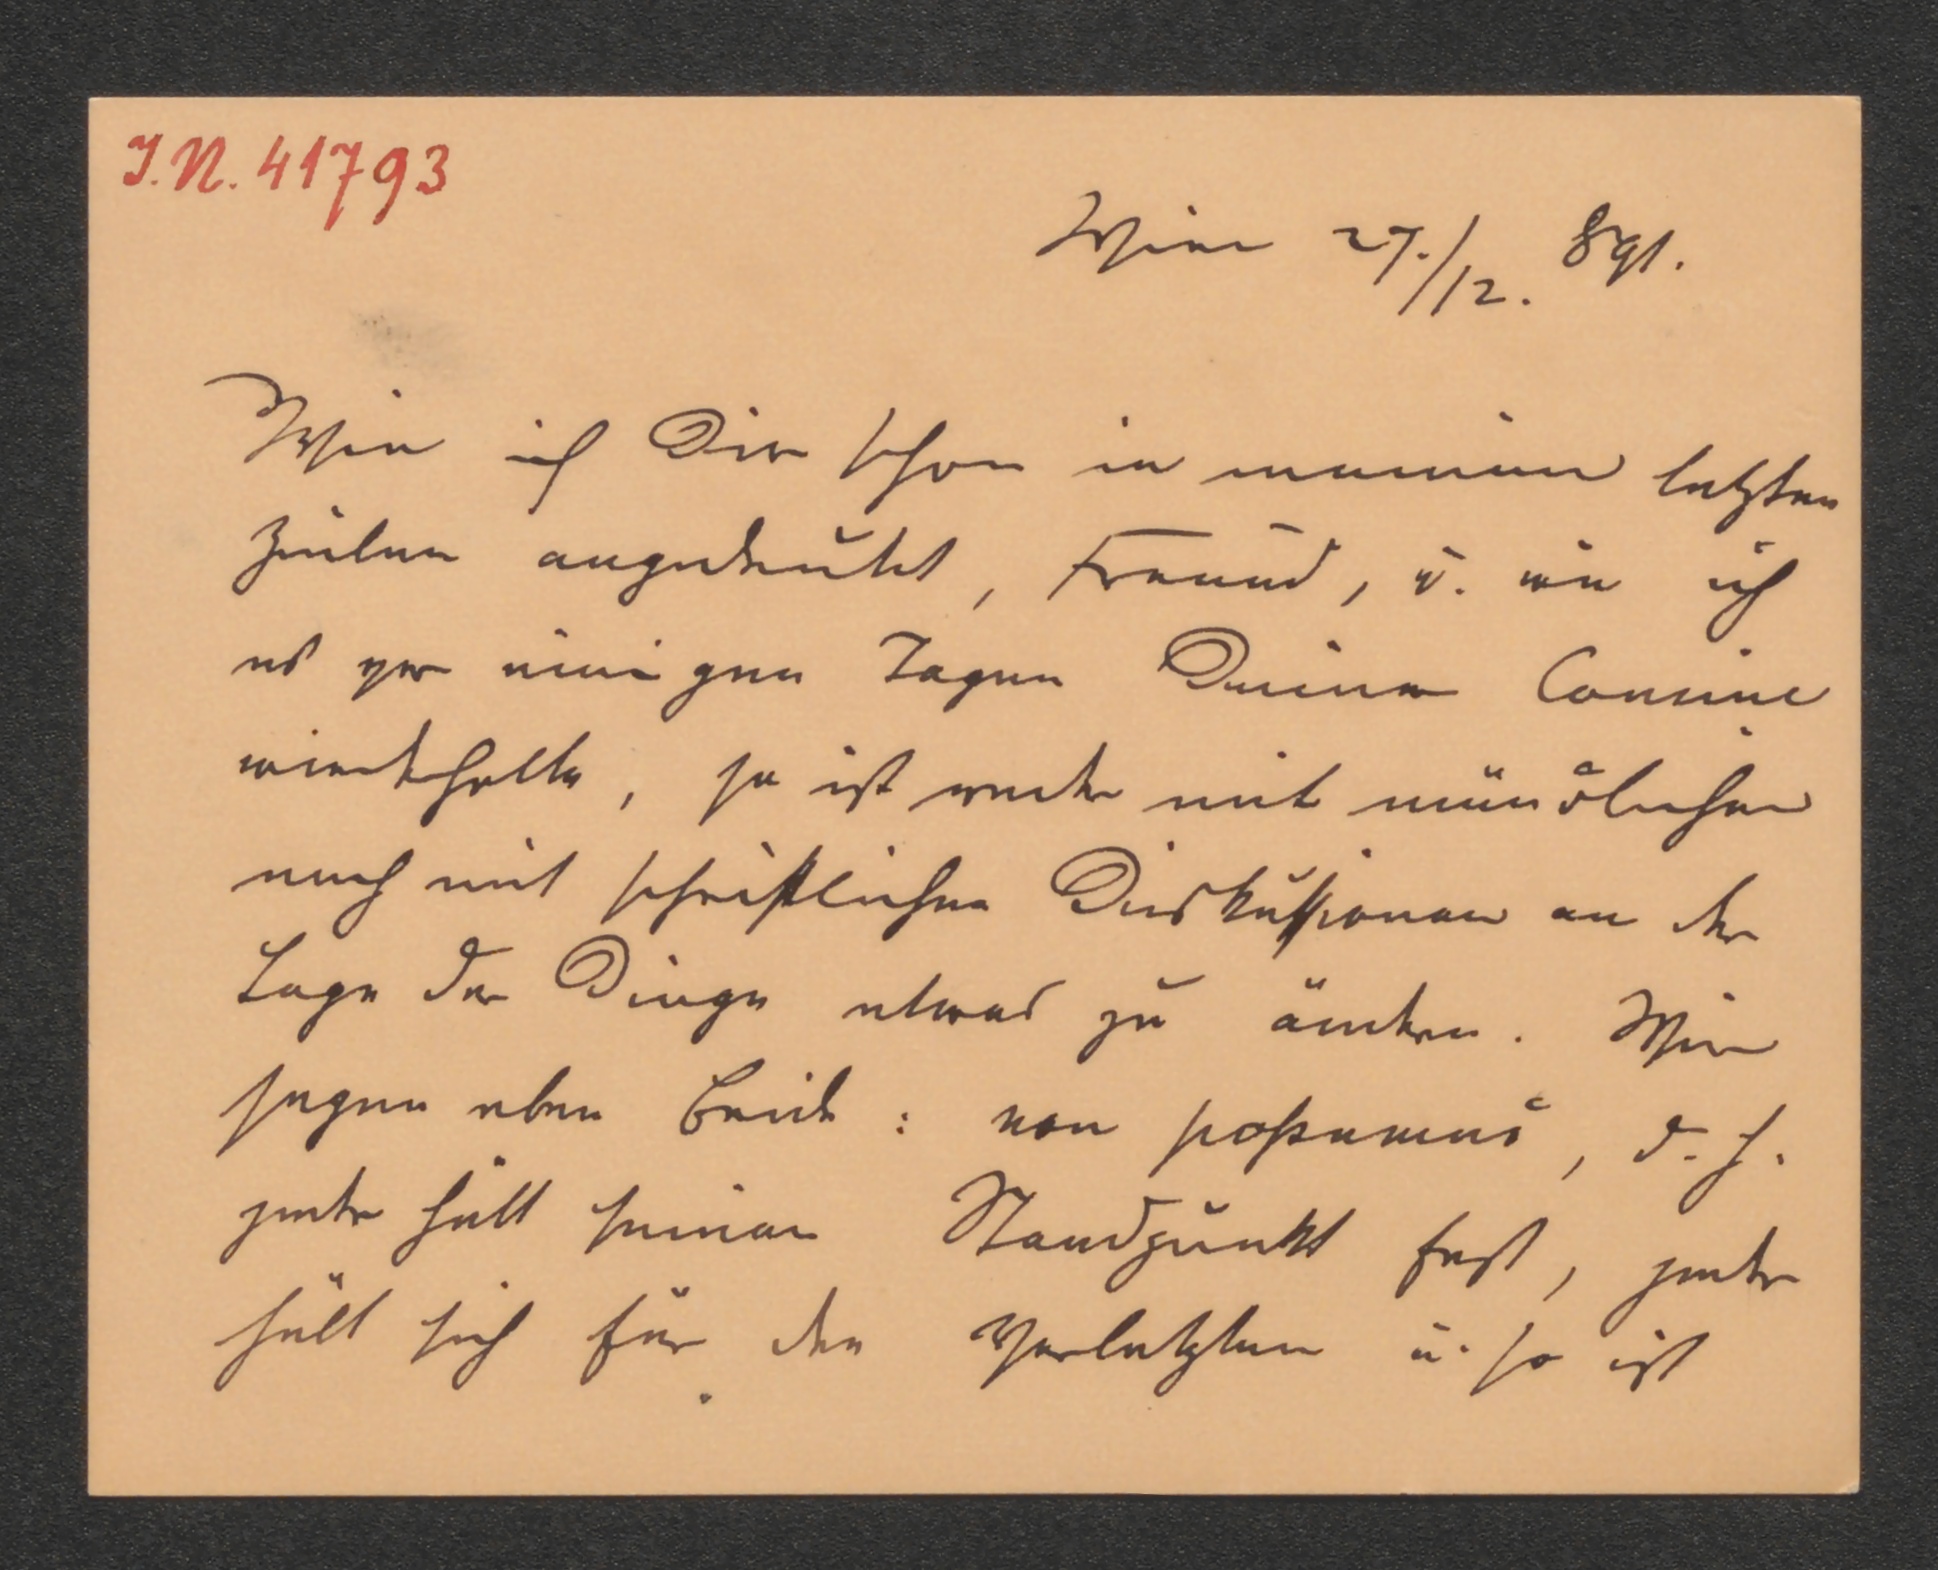 I.N. 41793
Wien 27./12. 891.
Wie ich Dir schon in meinen letzten
Zeilen angedeutet, Freund, u. wie ich
es vor einigen Tagen Deiner Cousine
wiederholte, so ist weder mit mündlichen
noch mit schriftlichen Diskussionen an der
Lage der Dinge etwas zu ändern. Wir
sagen eben beide: non possumus, d. h.
jeder hält seinen Standpunkt fest, jeder
hält sich für den Verletzten u. so ist